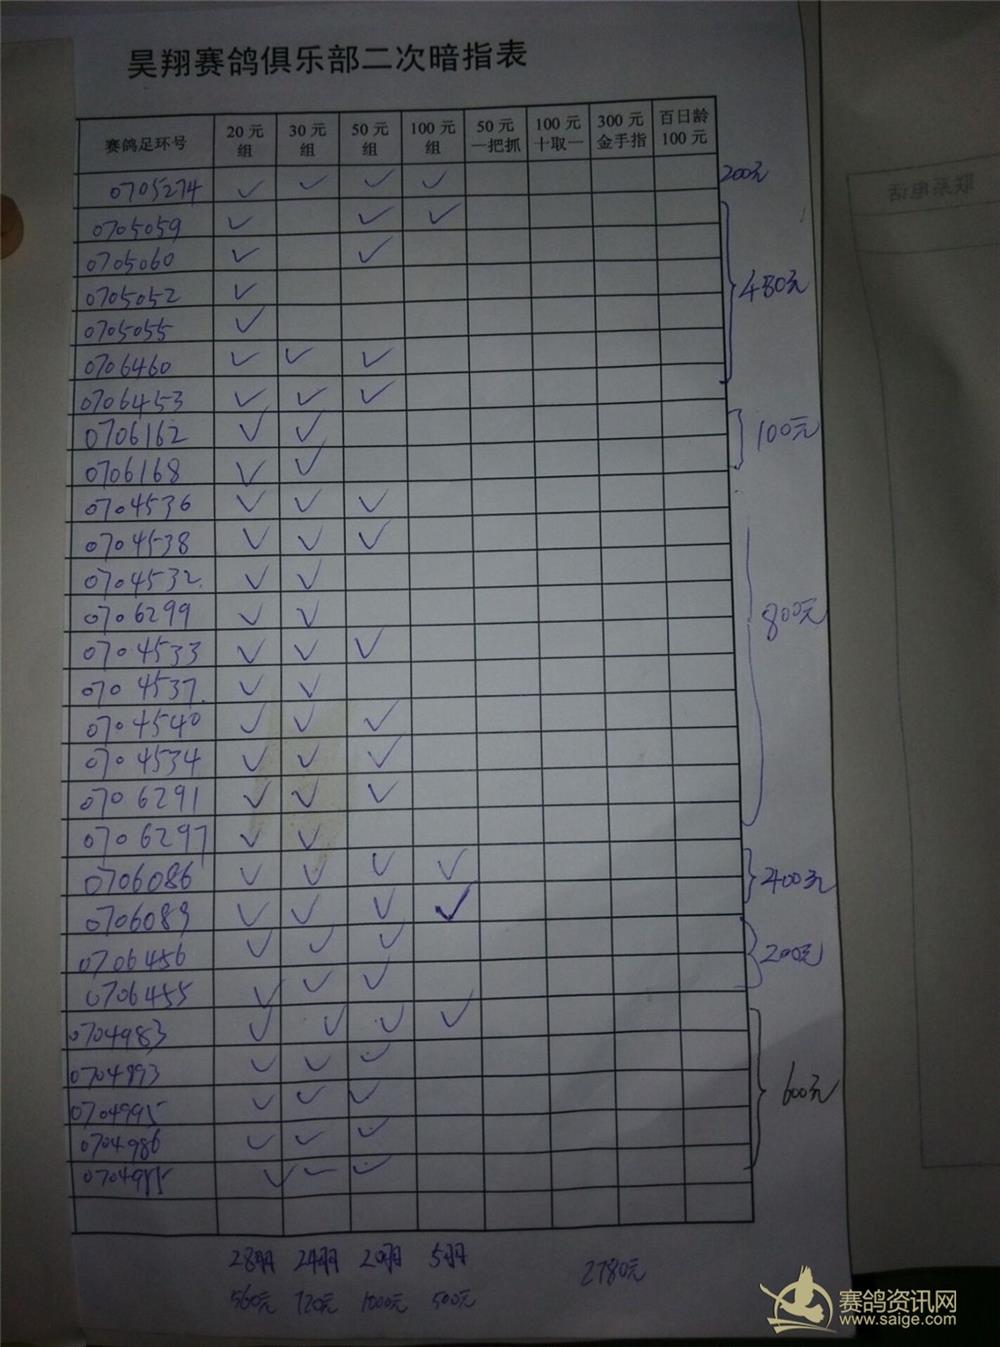 昊翔赛鸽俱乐部二次暗指表
赛鸽足环号 20元组 30元组 50元组 100元组 50元一把抓 100元十取一 300元金手指 百日龄100元
0705274 ✓ ✓ ✓ ✓ 200元
0705059 ✓ ✓ ✓
0705060 ✓ ✓
0705052 ✓ 480元
0705055 ✓
0706460 ✓ ✓ ✓
0706453 ✓ ✓ ✓
0706162 ✓ ✓ 100元
0706168 ✓ ✓
0704536 ✓ ✓ ✓
0704538 ✓ ✓ ✓
0704532 ✓ ✓
0706299 ✓ ✓ 800元
0704533 ✓ ✓ ✓
0704537 ✓ ✓
0704540 ✓ ✓ ✓
0704534 ✓ ✓ ✓
0706291 ✓ ✓ ✓
0706297 ✓ ✓
0706086 ✓ ✓ ✓ ✓ 400元
0706089 ✓ ✓ ✓ ✓
0706456 ✓ ✓ ✓ 200元
0706455 ✓ ✓ ✓
0704983 ✓ ✓ ✓ ✓
✓ ✓ ✓
0704995 ✓ ✓ ✓ 600元
0704986 ✓ ✓ ✓
✓ ✓ ✓
28羽 24羽 20羽 5羽 2780元
560元 720元 1000元 500元
联系电话
赛鸽资讯网
www.saige.com